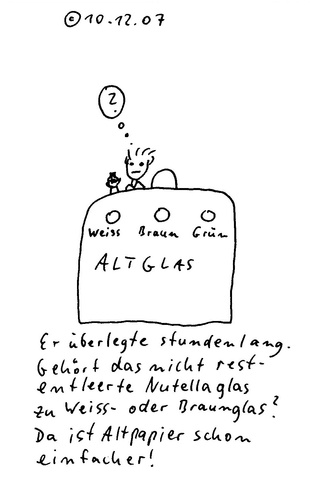 © 10.12.07
?
Weiss Braun Grün
ALTGLAS
Er überlegte stundenlang.
Gehört das nicht rest-
entleerte Nutellaglas
zu Weiss- oder Braunglas?
Da ist Altpapier schon
einfacher!